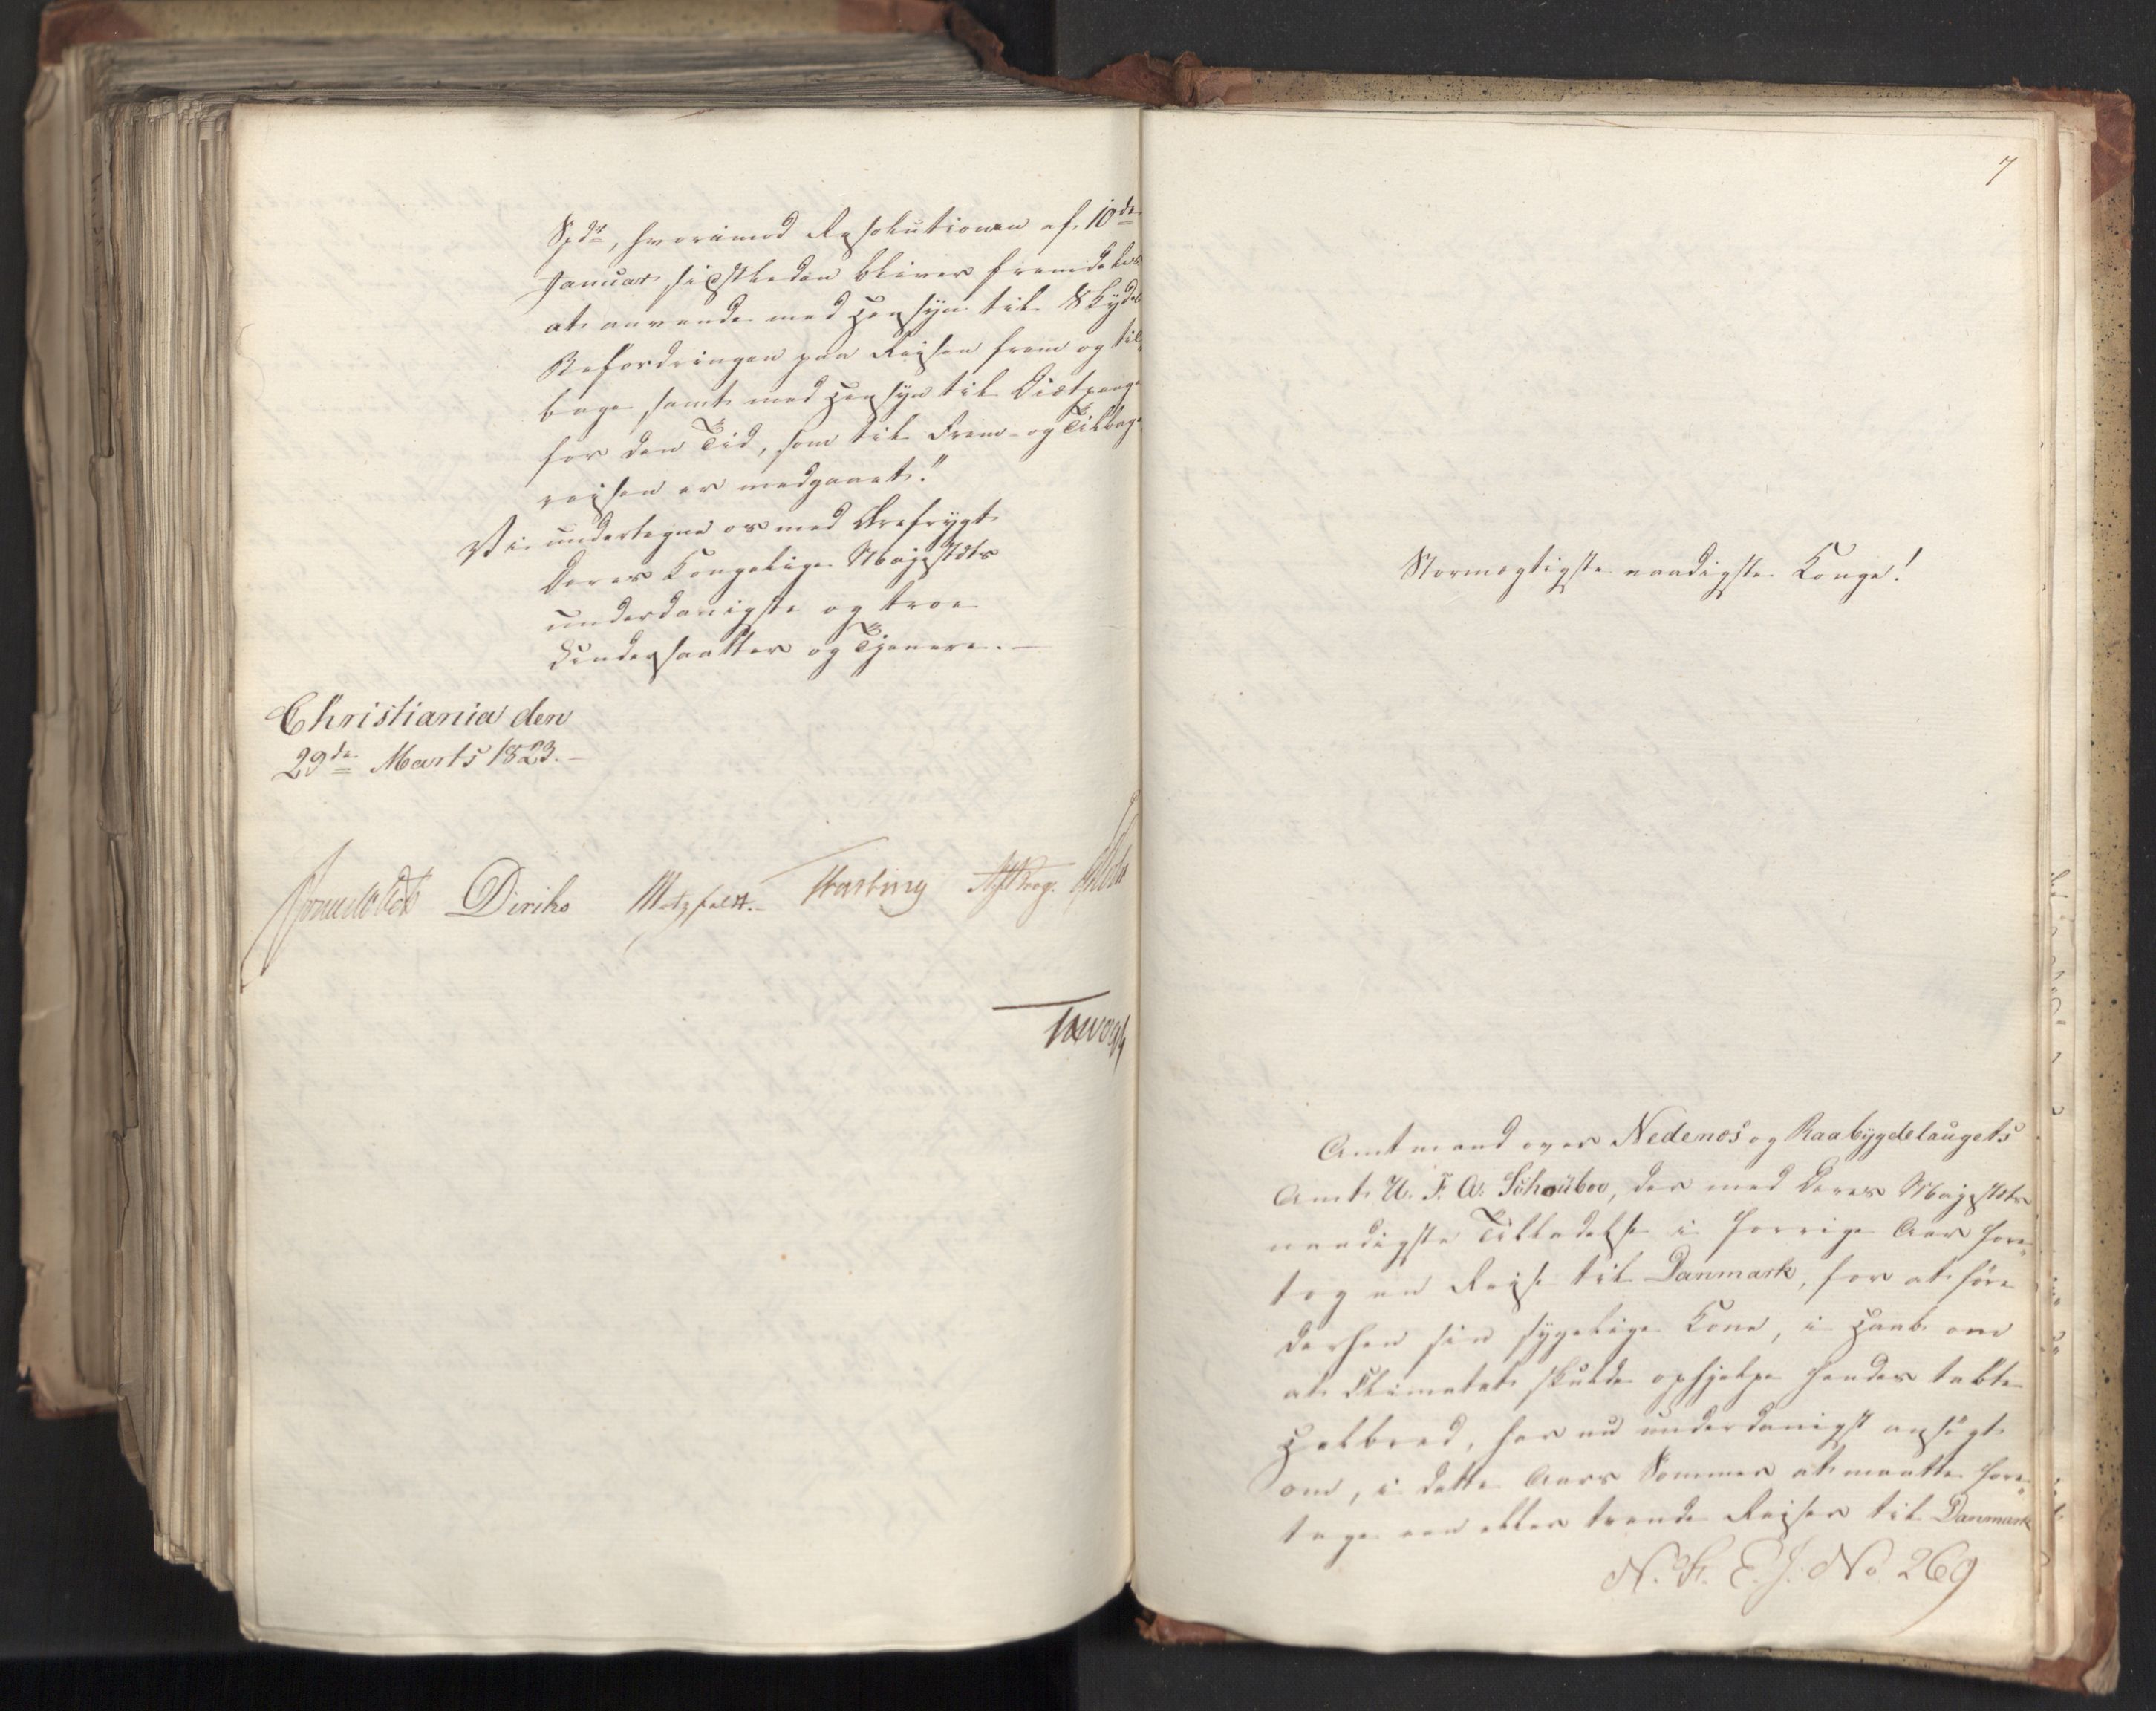 Spdr, hvorimod Resolutionen af 10de
Januar sidstleden bliver fremdeles
at anvende med Hensyn til Skyds
Befordringen paa Reisen frem og til-
bage samt med Hensyn til Diætpenge
for den Tid, som til Frem- og Tilbage
reisen er medgaaet."
Vi undertegne os med Ærefrygt
Deres Kongelige Majestæts
underdanigste og troe
Undersaatter og Tjenere.
Christiania den
29de Marts 1823.
Sommerhielm Diriks Motzfeldt. Fasting JHVogt. Holst
7
Stormægtigste naadigste Konge!
Amtmand over Nedenes og Raabygdelaugets
Amt U. F. A. Schouboe, der med Deres Majestæts
naadigste Tilladelse i forrige Aar fore-
tog en Reise til Danmark, for at føre
derhen sin sygelige Kone, i Haab om
at Climatet skulde ophjelpe hendes tabte
Helbred, har nu underdanigst ansøgt
om, i dette Aars Sommer at maatte fore-
tage een eller tvende Reiser til Danmark
N. St. E. J. No 269